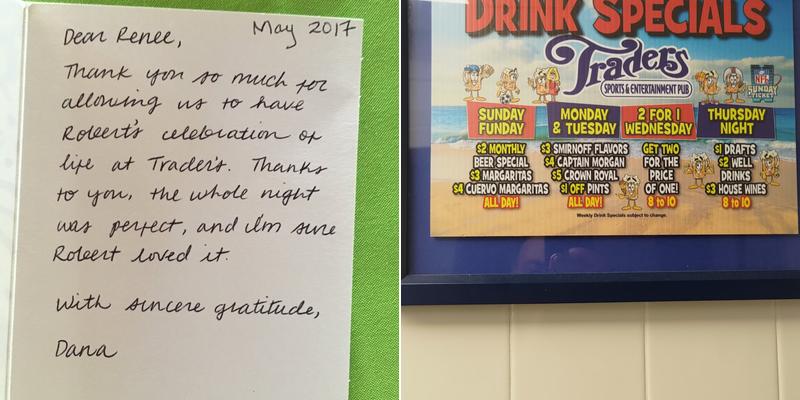 May 2017
Dear Renee,
Thank you so much for
allowing us to have
Robert's celebration of
life at Trader's. Thanks
to you, the whole night
was perfect, and I'm sure
Robert loved it.
With sincere gratitude,
Dana
DRINK SPECIALS
Traders
SPORTS & ENTERTAINMENT PUB
NFL
SUNDAY
TICKET
SUNDAY
FUNDAY
$2 MONTHLY
BEER SPECIAL
$3 MARGARITAS
$4 CUERVO MARGARITAS
ALL DAY!
MONDAY
& TUESDAY
$3 SMIRNOFF, FLAVORS
$4 CAPTAIN MORGAN
$5 CROWN ROYAL
$1 OFF PINTS
ALL DAY!
2 FOR 1
WEDNESDAY
GET TWO
FOR THE
PRICE
OF ONE!
8 to 10
THURSDAY
NIGHT
$1 DRAFTS
$2 WELL
DRINKS
$3 HOUSE WINES
8 to 10
Weekly Drink Specials subject to change.